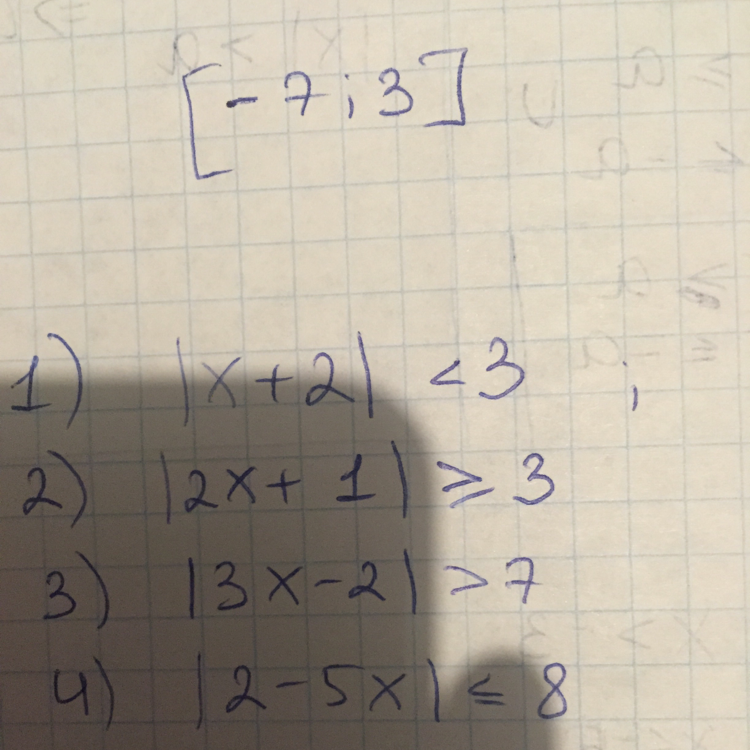 [-7; 3]
1) |x+2| < 3 ;
2) |2x+ 1| ≥ 3
3) |3x-2| > 7
4) |2-5x| ≤ 8